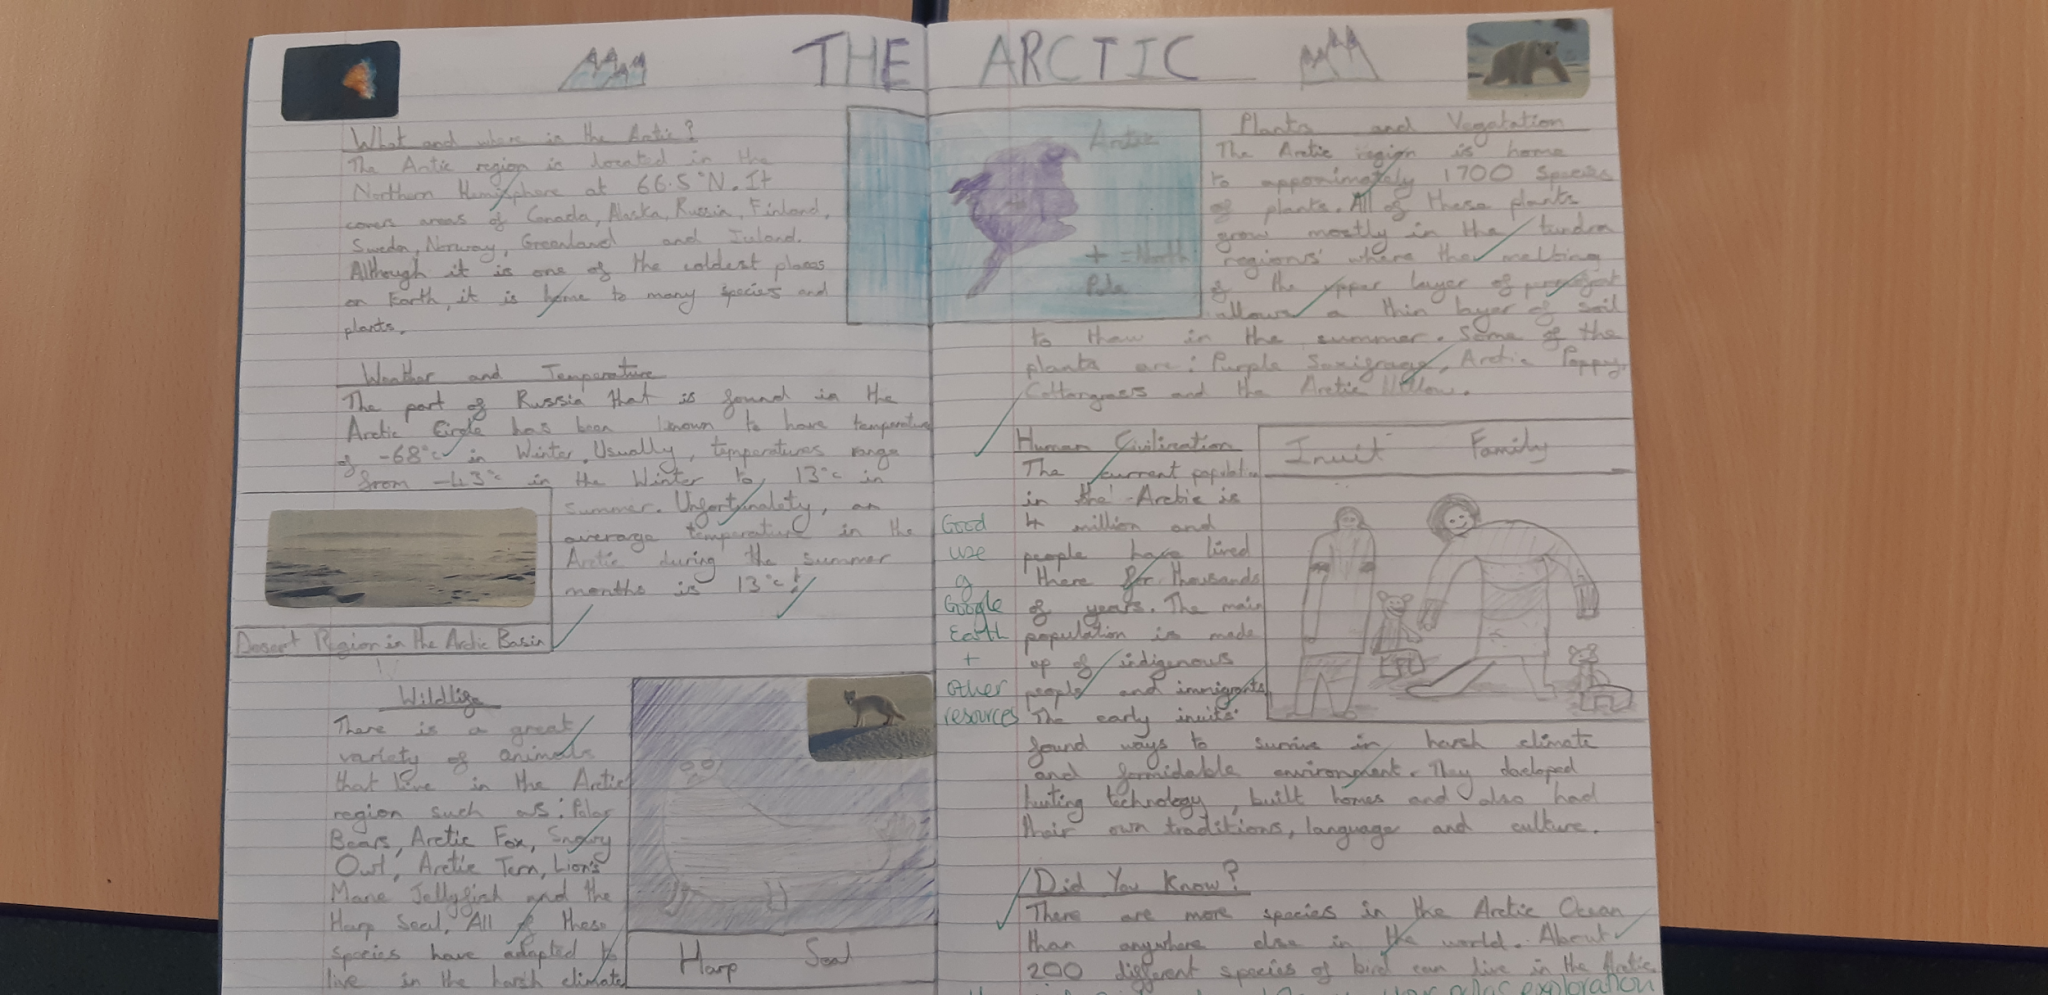 THE ARCTIC
What and where is the Arctic?
The Arctic region is located in the
Northern Hemisphere at 66.5°N. It
covers areas of Canada, Alaska, Russia, Finland,
Sweden, Norway, Greenland and Iceland.
Although it is one of the coldest places
on Earth, it is home to many species and
plants.
Weather and Temperature
The part of Russia that is found in the
Arctic Circle has been known to have temperature
of -68°c in Winter. Usually, temperatures range
from -43°c in the Winter to 13°c in
summer. Unfortunately, an
average temperature in the
Arctic during the summer
months is 13°c!
Desert Region in the Arctic Basin
Wildlife
There is a great
variety of animals
that live in the Arctic
region such as: Polar
Bears, Arctic Fox, Snowy
Owl, Arctic Tern, Lion's
Mane Jellyfish and the
Harp Seal. All of these
species have adapted to
live in the harsh climate
Harp Seal
Arctic
+ = North
Pole
Plants and Vegatation
The Arctic region is home
to approximately 1700 species
of plants. All of these plants
grow mostly in the tundra
regions' where the melting
of the upper layer of
allows a thin layer of soil
to thaw in the summer. Some of the
plants are: Purple Saxifrage, Arctic Poppy,
Cottongrass and the Arctic Willow.
Human Civilization
The current population
in the Arctic is
4 million and
people have lived
there for thousands
of years. The main
population is made
up of indigenous
people and immigrants.
The early inuits'
found ways to survive in harsh climate
and formidable environment. They
hunting technology, built homes and also had
their own traditions, language and culture.
Inuit Family
Good
use
of
Google
Earth
+
other
resources
Did You Know?
There are more species in the Arctic Ocean
than anywhere else in the world. About
200 different species of bird can live in the Arctic
exploration